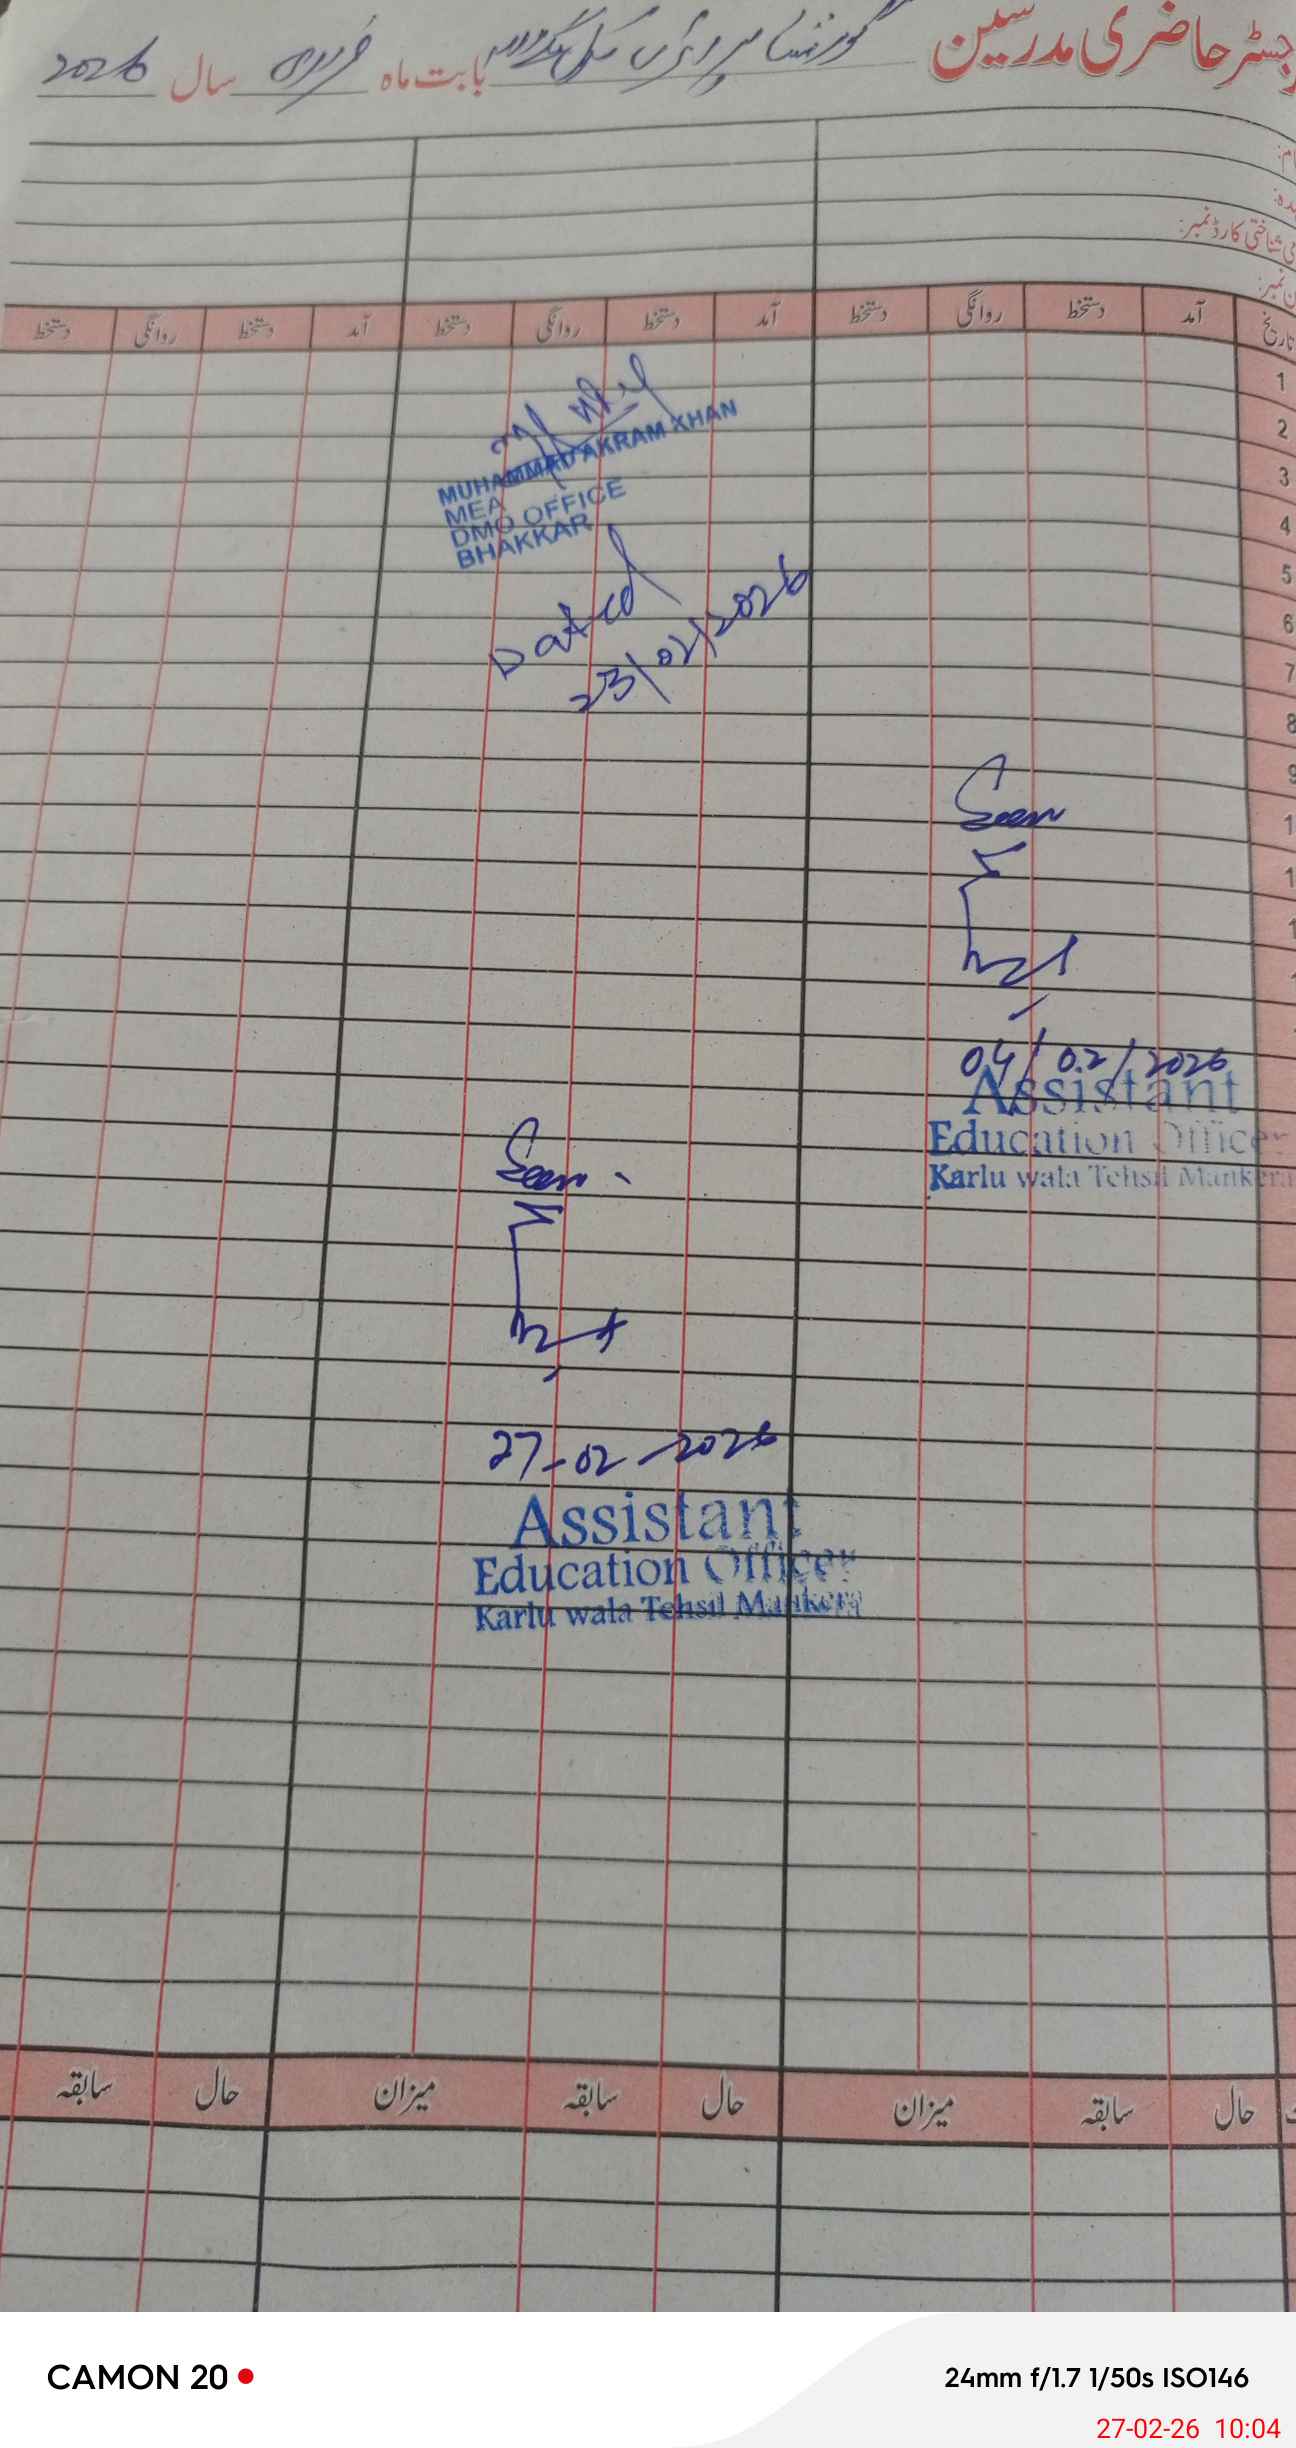 رجسٹر حاضری مدرسین گورنمنٹ بابت ماہ فروری سال 2026
نام:
عہدہ:
شناختی کارڈ نمبر:
فون نمبر:
تاریخ آمد دستخط روانگی دستخط آمد دستخط روانگی دستخط آمد دستخط روانگی دستخط
1
2
3
4
5
6
7
8
9
MUHAMMAD AKRAM KHAN
MEA
DMO OFFICE
BHAKKAR
Dated
23/02/2026
Seen
04/02/2026
Assistant
Education Officer
Karlu wala Tehsil Mankera
Seen
27-02-2026
Assistant
Education Officer
Karlu wala Tehsil Mankera
حال سابقہ میزان حال سابقہ میزان حال سابقہ
CAMON 20
24mm f/1.7 1/50s ISO146
27-02-26 10:04